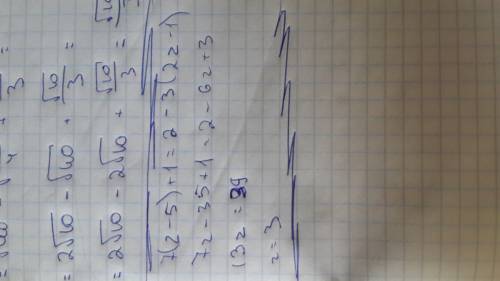 = 2√10 - √40 + √10/3 =
= 2√10 - 2√10 + √10/3 =
7(z-5)+1=2-3(2z-1)
7z-35+1=2-6z+3
13z=39
z=3